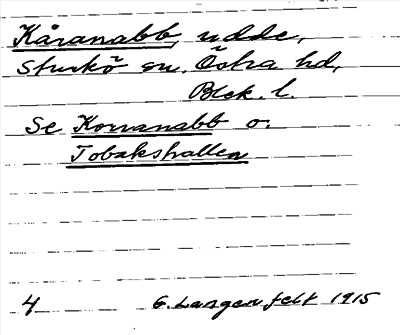 Kåranabb, udde,
Sturkö sn. Östra hd,
Blek. l.
Se Korranabb o.
Tobakshallen
4 G. Langenfelt 1915